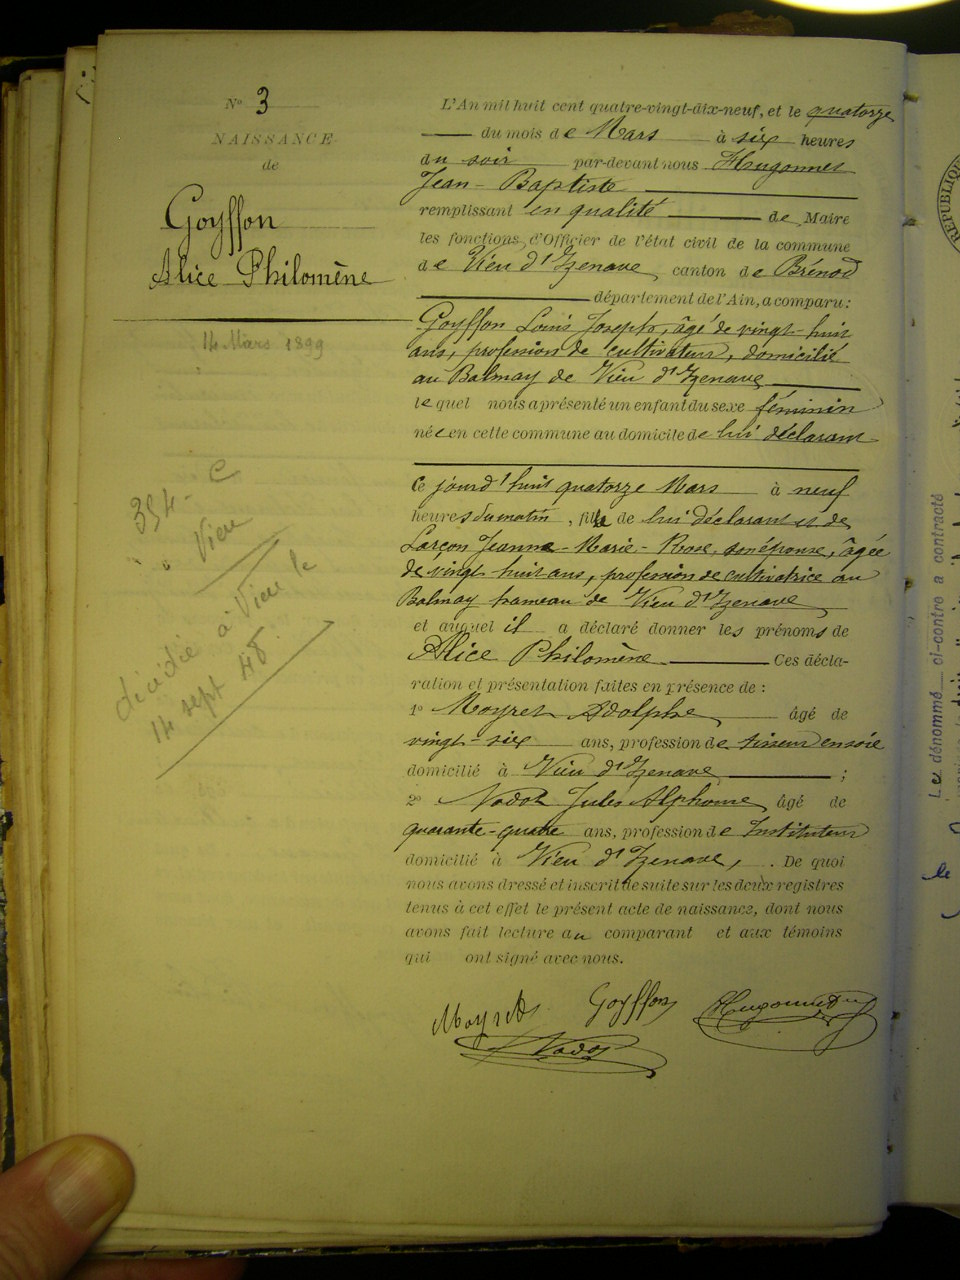 N° 3
NAISSANCE
de
Goyffon
Alice Philomène
14 Mars 1899
394 - C
" " Vieu
décédée à Vieu le
14 sept 48
L'An mil huit cent quatre-vingt-dix-neuf, et le quatorze
du mois de Mars à six heures
du soir par-devant nous Hugonnet
Jean-Baptiste
remplissant en qualité de Maire
les fonctions d'Officier de l'état civil de la commune
de Vieu d'Izenave, canton de Brénod
département de l'Ain, a comparu :
Goyffon Louis Joseph, âgé de vingt-huit
ans, profession de cultivateur, domicilié
au Balmay de Vieu d'Izenave
lequel nous a présenté un enfant du sexe féminin
née en cette commune au domicile de lui déclarant
Ce jourd'huit quatorze Mars à neuf
heures du matin, fille de lui déclarant et de
Larçon Jeanne-Marie-Rose, son épouse, âgée
de vingt-huit ans, profession de cultivatrice au
Balmay hameau de Vieu d'Izenave
et auquel il a déclaré donner les prénoms de
Alice Philomène Ces décla-
ration et présentation faites en présence de :
1° Moyret Adolphe âgé de
vingt-six ans, profession de tisseur en soie
domicilié à Vieu d'Izenave ;
2° Nodot Jules Alphonse, âgé de
quarante-quatre ans, profession de Instituteur
domicilié à Vieu d'Izenave, . De quoi
nous avons dressé et inscrit de suite sur les deux registres
tenus à cet effet le présent acte de naissance, dont nous
avons fait lecture au comparant et aux témoins
qui ont signé avec nous.
Moyret Goyffon Hugonnet
Nodot
RÉPUBLIQUE
Le dénommé ci-contre a contracté
le